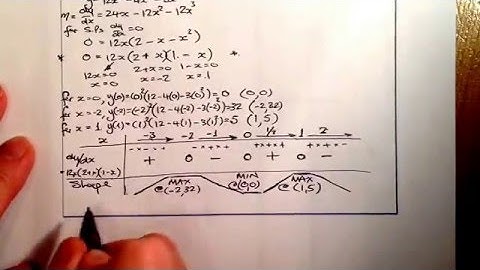 m = dy/dx = 24x - 12x² - 12x³
for S.Ps dy/dx = 0
0 = 12x(2 - x - x²)
0 = 12x(2 + x)(1 - x) *
12x = 0 2+x = 0 1-x = 0
x = 0 x = -2 x = 1
for x = 0, y(0) = (0)²(12-4(0)-3(0)²) = 0 (0,0)
for x = -2, y(-2) = (-2)²(12-4(-2)-3(-2)²) = 32 (-2,32)
for x = 1, y(1) = (1)²(12-4(1)-3(1)²) = 5 (1,5)
x -3 -2 -1 0 1/2 1 2
dy/dx + 0 - 0 + 0 -
12x(2+x)(1-x)
Shape MAX @(-2,32) MIN @(0,0) MAX @(1,5)